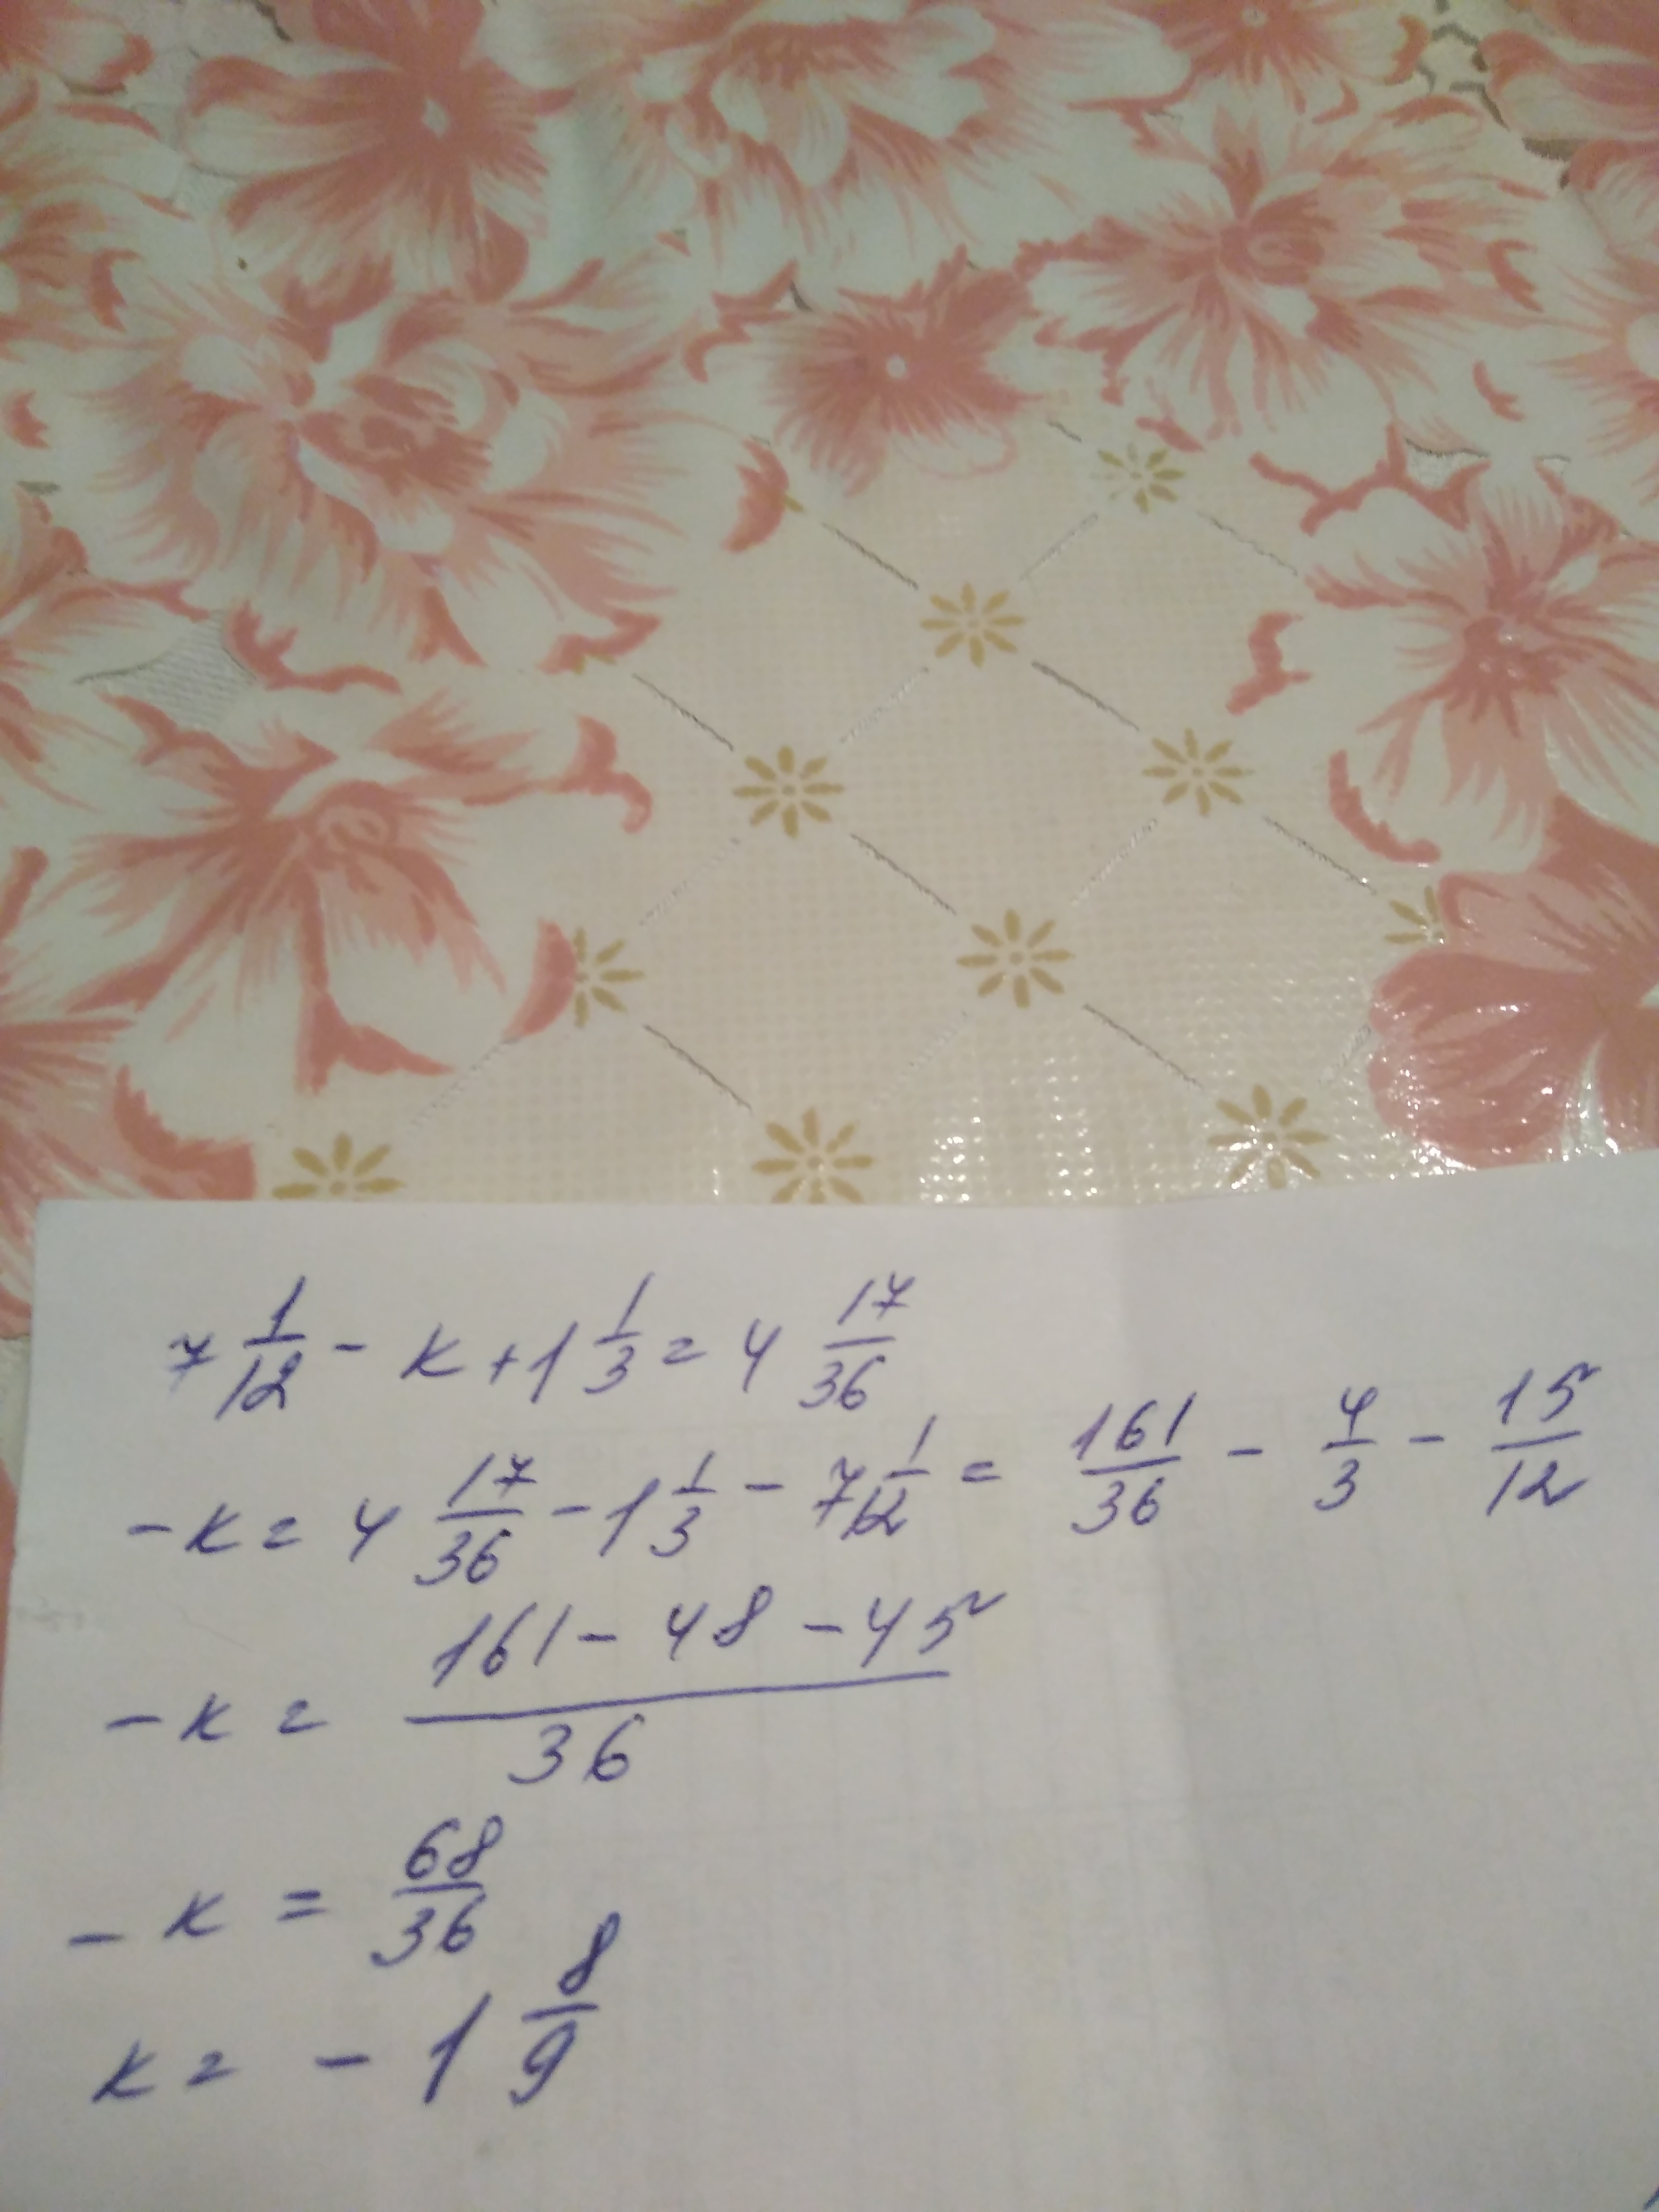 7 1/12 - к + 1 1/3 = 4 17/36
-к = 4 17/36 - 1 1/3 - 7 1/12 = 161/36 - 4/3 - 15/12
-к = (161 - 48 - 45)/36
-к = 68/36
к = - 1 8/9